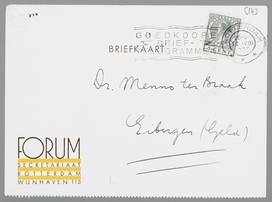 GOEDKOOPE
BRIEF-
BRIEFKAART
Dr. Menno ter Braak
Eibergen (Geld)
FORUM
SECRETARIAAT
ROTTERDAM
WIJNHAVEN 113